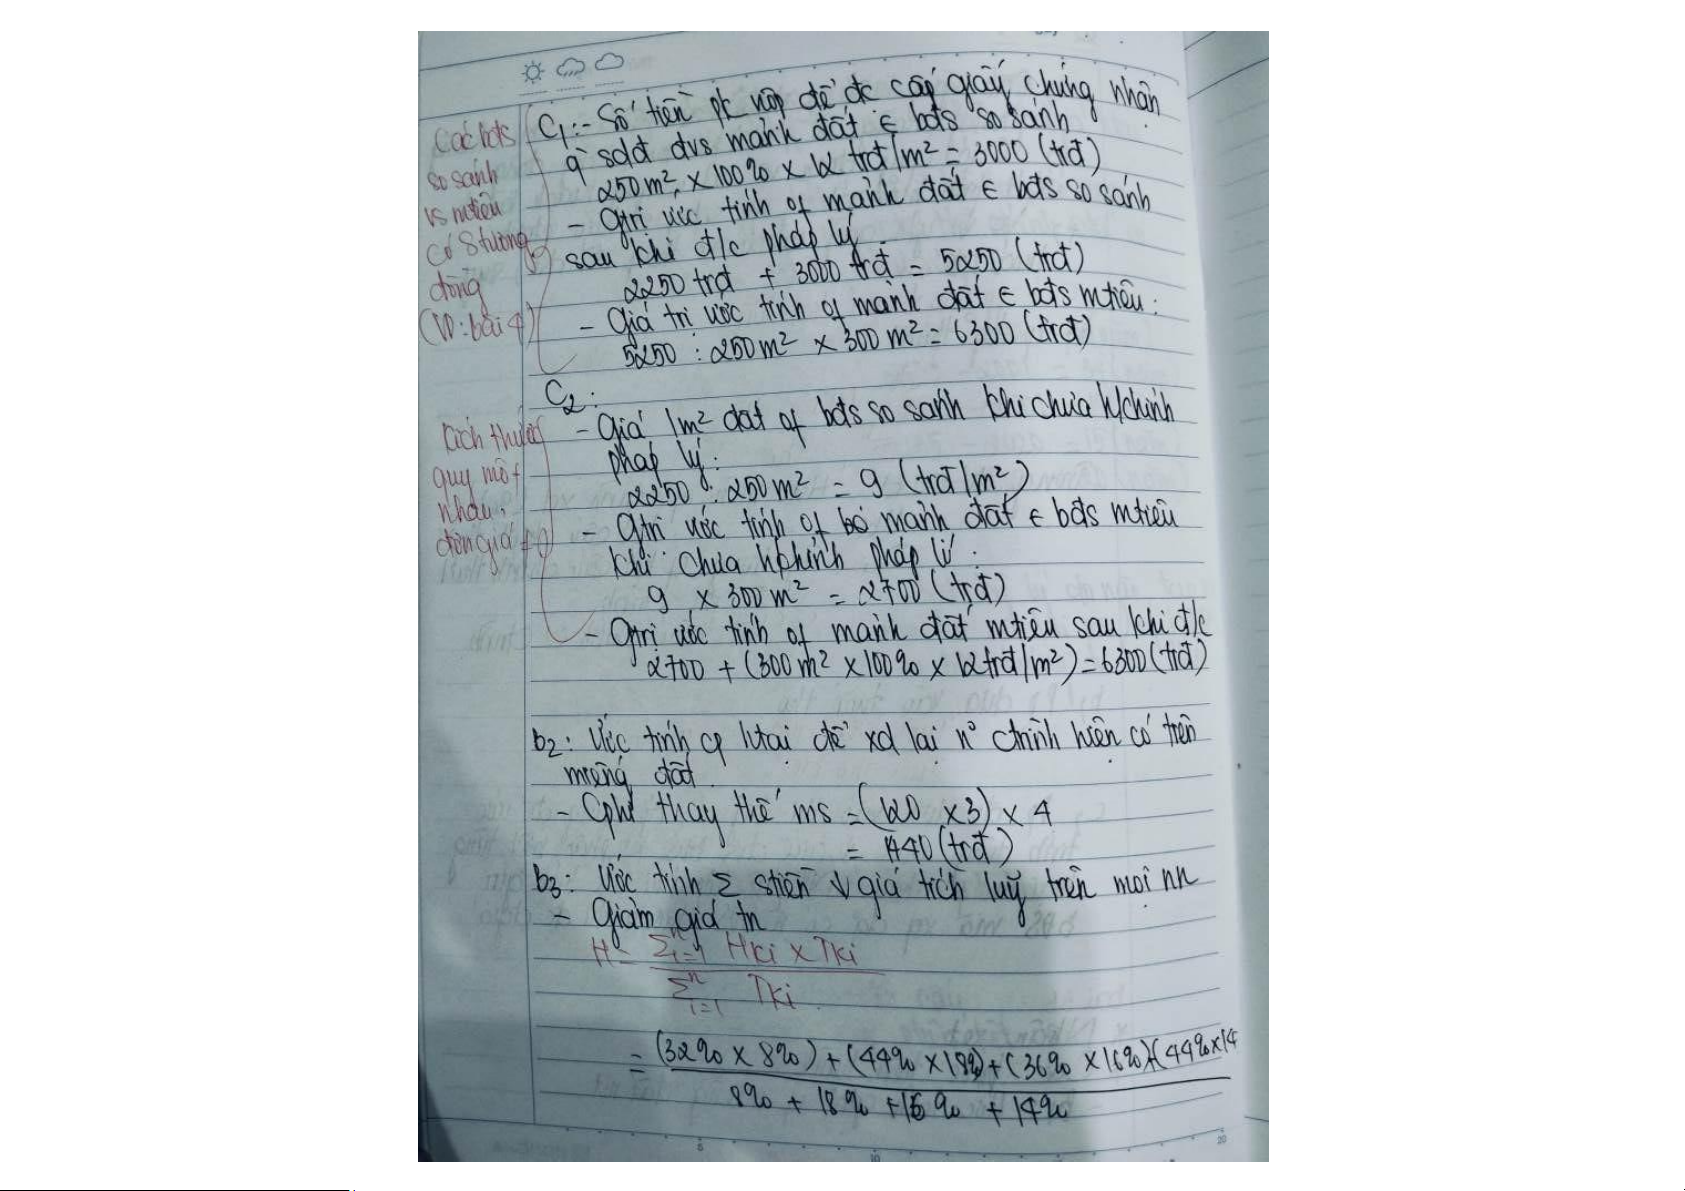 C1: - Số tiền pk nộp để đc cấp giấy chứng nhận
q sdđ đvs mảnh đất ∈ bđs so sánh
250m² × 100% × 12 trđ/m² = 3000 (trđ)
- Gtrị ước tính of mảnh đất ∈ bđs so sánh
sau khi đ/c pháp lý
2250 trđ + 3000 trđ = 5250 (trđ)
- Giá trị ước tính of mảnh đất ∈ bđs mtiêu:
5250 : 250m² × 300m² = 6300 (trđ)
Các bđs
so sánh
vs mtiêu
có S tương
đồng
(VD: bài 4)
C2:
- Giá 1m² đất of bđs so sánh khi chưa h/chỉnh
pháp lý:
2250 : 250m² = 9 (trđ/m²)
- Gtrị ước tính of mảnh đất ∈ bđs mtiêu
khi chưa h/chỉnh pháp lí:
9 × 300m² = 2700 (trđ)
- Gtrị ước tính of mảnh đất mtiêu sau khi đ/c
2700 + (300m² × 100% × 12trđ/m²) = 6300 (trđ)
Kích thước
quy mô ≠
nhau,
đơn giá ≠
b2: Ước tính cp htại để xd lại n° ctrình hiện có trên
miếng đất
- Cphí thay thế ms = (120 × 3) × 4
= 1440 (trđ)
b3: Ước tính Σ stiền ↓ giá tích luỹ trên mọi nn
- Giảm giá tn
H = Σⁿi=1 Hki × Tki
Σⁿi=1 Tki
= (32% × 8%) + (44% × 18%) + (36% × 16%) + (44% × 14
8% + 18% + 16% + 14%